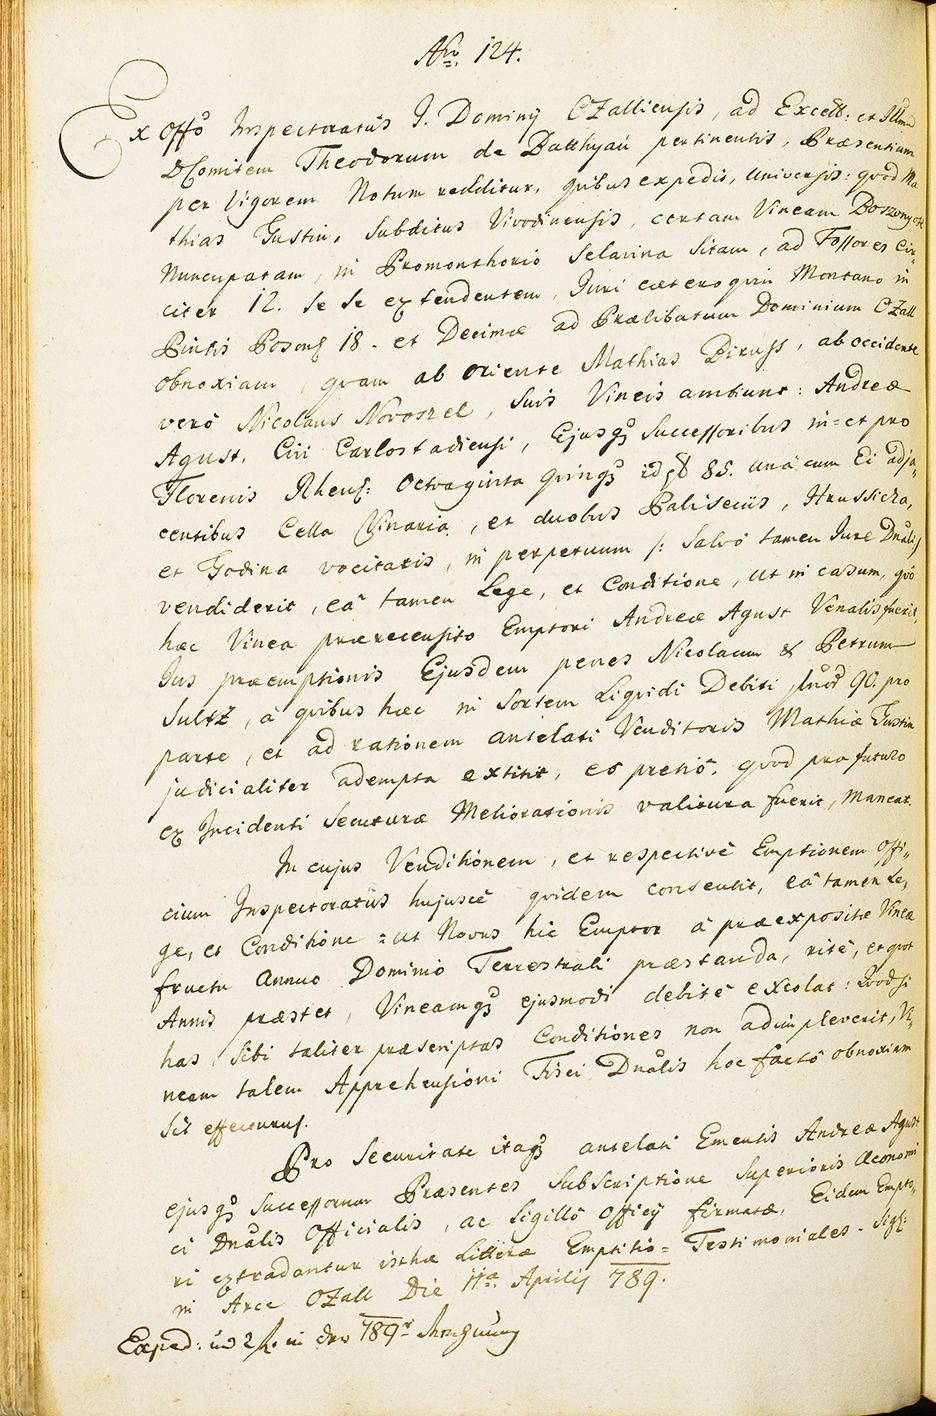 Nro. 124.
Ex Offo Inspectoratûs I. Dominij OZalliensis, ad Excell: et Illmum
D Comitem Theodorum de Batthyań pertinentis, Præsentium
per Vigorem Notum redditur, quibus expedit, Universis: quod Ma
thias Gustin, Subditus Vivodinensis, certam Vineam
Nuncupatam, in Promonthorio Selavina Sitam, ad Fossores Cir„
citer 12. se se extendentem, Juri cæteroquin Montano in
Pintis Poson 18. et Decimæ ad Prælibatum Dominium OZall
obnoxiam, quam ab oriente Mathias Biruss, ab occidente
verò Nicolaus Novoszel, Suis Vineis ambiunt: Andreæ
Agust, Civi Carlostadiensi, Ejusq3 Successoribus in= et pro
Florenis Rhens: Octvaginta quinq3 id est 85. unâ cum Ei adja„
centibus Cella Vinaria, et duobus Paliseciis, Hrussicza,
et Godina vocitatis, in perpetuum /: Salvô tamen Jure Dnali :/
vendiderit, eâ tamen Lege, et Conditione, ut in casum, quô
hæc Vinea prærecensito Emptori Andreæ Agust Venalis fuerit,
Jus præemptionis Ejusdem penes Nicolaum & Petrum
Sultz, â quibus hæc in Sortem Liquidi Debiti 90. pro
parte, et ad rationem antelati Venditoris Mathiæ Gustin
judicialiter adempta extitit, eô pretiô, quod pro futuro
ex Incidenti Secuturæ Meliorationis valitura fuerit, Maneat.
In cujus Venditionem, et respectivê Emptionem Offi„
cium Inspectoratûs hujuscê quidem consentit, eâ tamen Le„
ge, et Conditione: ut Novus hic Emptor â præexpositæ Vineæ
fructu Annuo Dominio Terrestrali præstanda, ritê, et quot
Annis præstet, Vineamq3 ejusmodi debitê excolat: Quodsi
has Sibi taliter præscriptas Conditiones non adimpleverit, Vi„
neam talem Apprehensioni Fisci Dnalis hoc factô obnoxiam
Sit effecturus.
Pro Securitate itaq3 antelati Ementis Andreæ Agust
ejusq3 Successorum Præsentes Subscriptione Superioris Æconomi
ci Dnalis Officialis, ac Sigillô Officij firmatæ, Eidem Empto„
ri extradantur isthæ Litteræ Emptitio= Testimoniales. Sigl:
in Arce OZall Die 11a Aprilis 789.
Exped: in 2 in der 789r